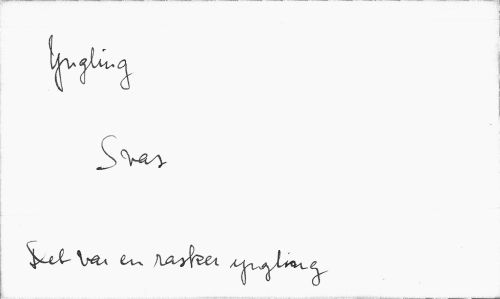 Yngling
Svar
Det var en rasker yngling